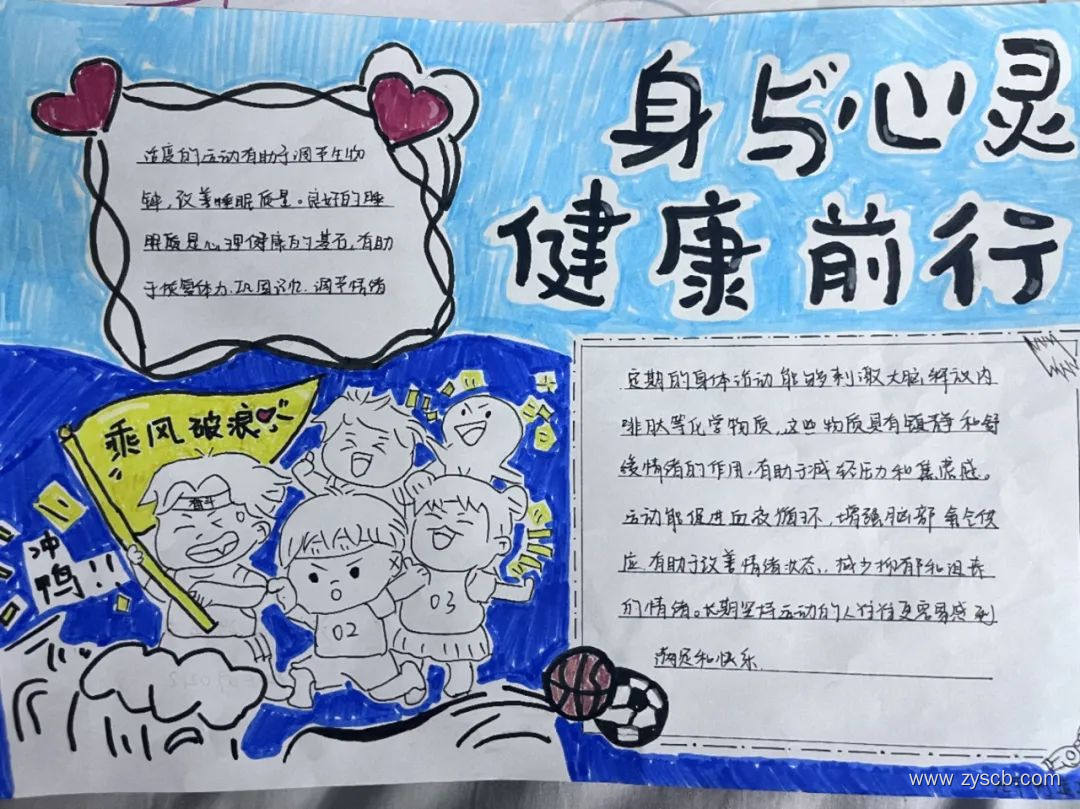 身与心灵
健康前行
适度的运动有助于调节生物
钟,改善睡眠质量。良好的睡
眠质量是心理健康的基石,有助
于恢复体力、巩固记忆、调节情绪
乘风破浪
奋斗
冲
鸭!!
02
03
定期的身体活动能够刺激大脑释放内
啡肽等化学物质,这些物质具有镇静和舒
缓情绪的作用,有助于减轻压力和焦虑感。
运动能促进血液循环,增强脑部氧气供
应,有助于改善情绪状态,减少抑郁和沮丧
的情绪。长期坚持运动的人往往更容易感到
满足和快乐
www.zyscb.com